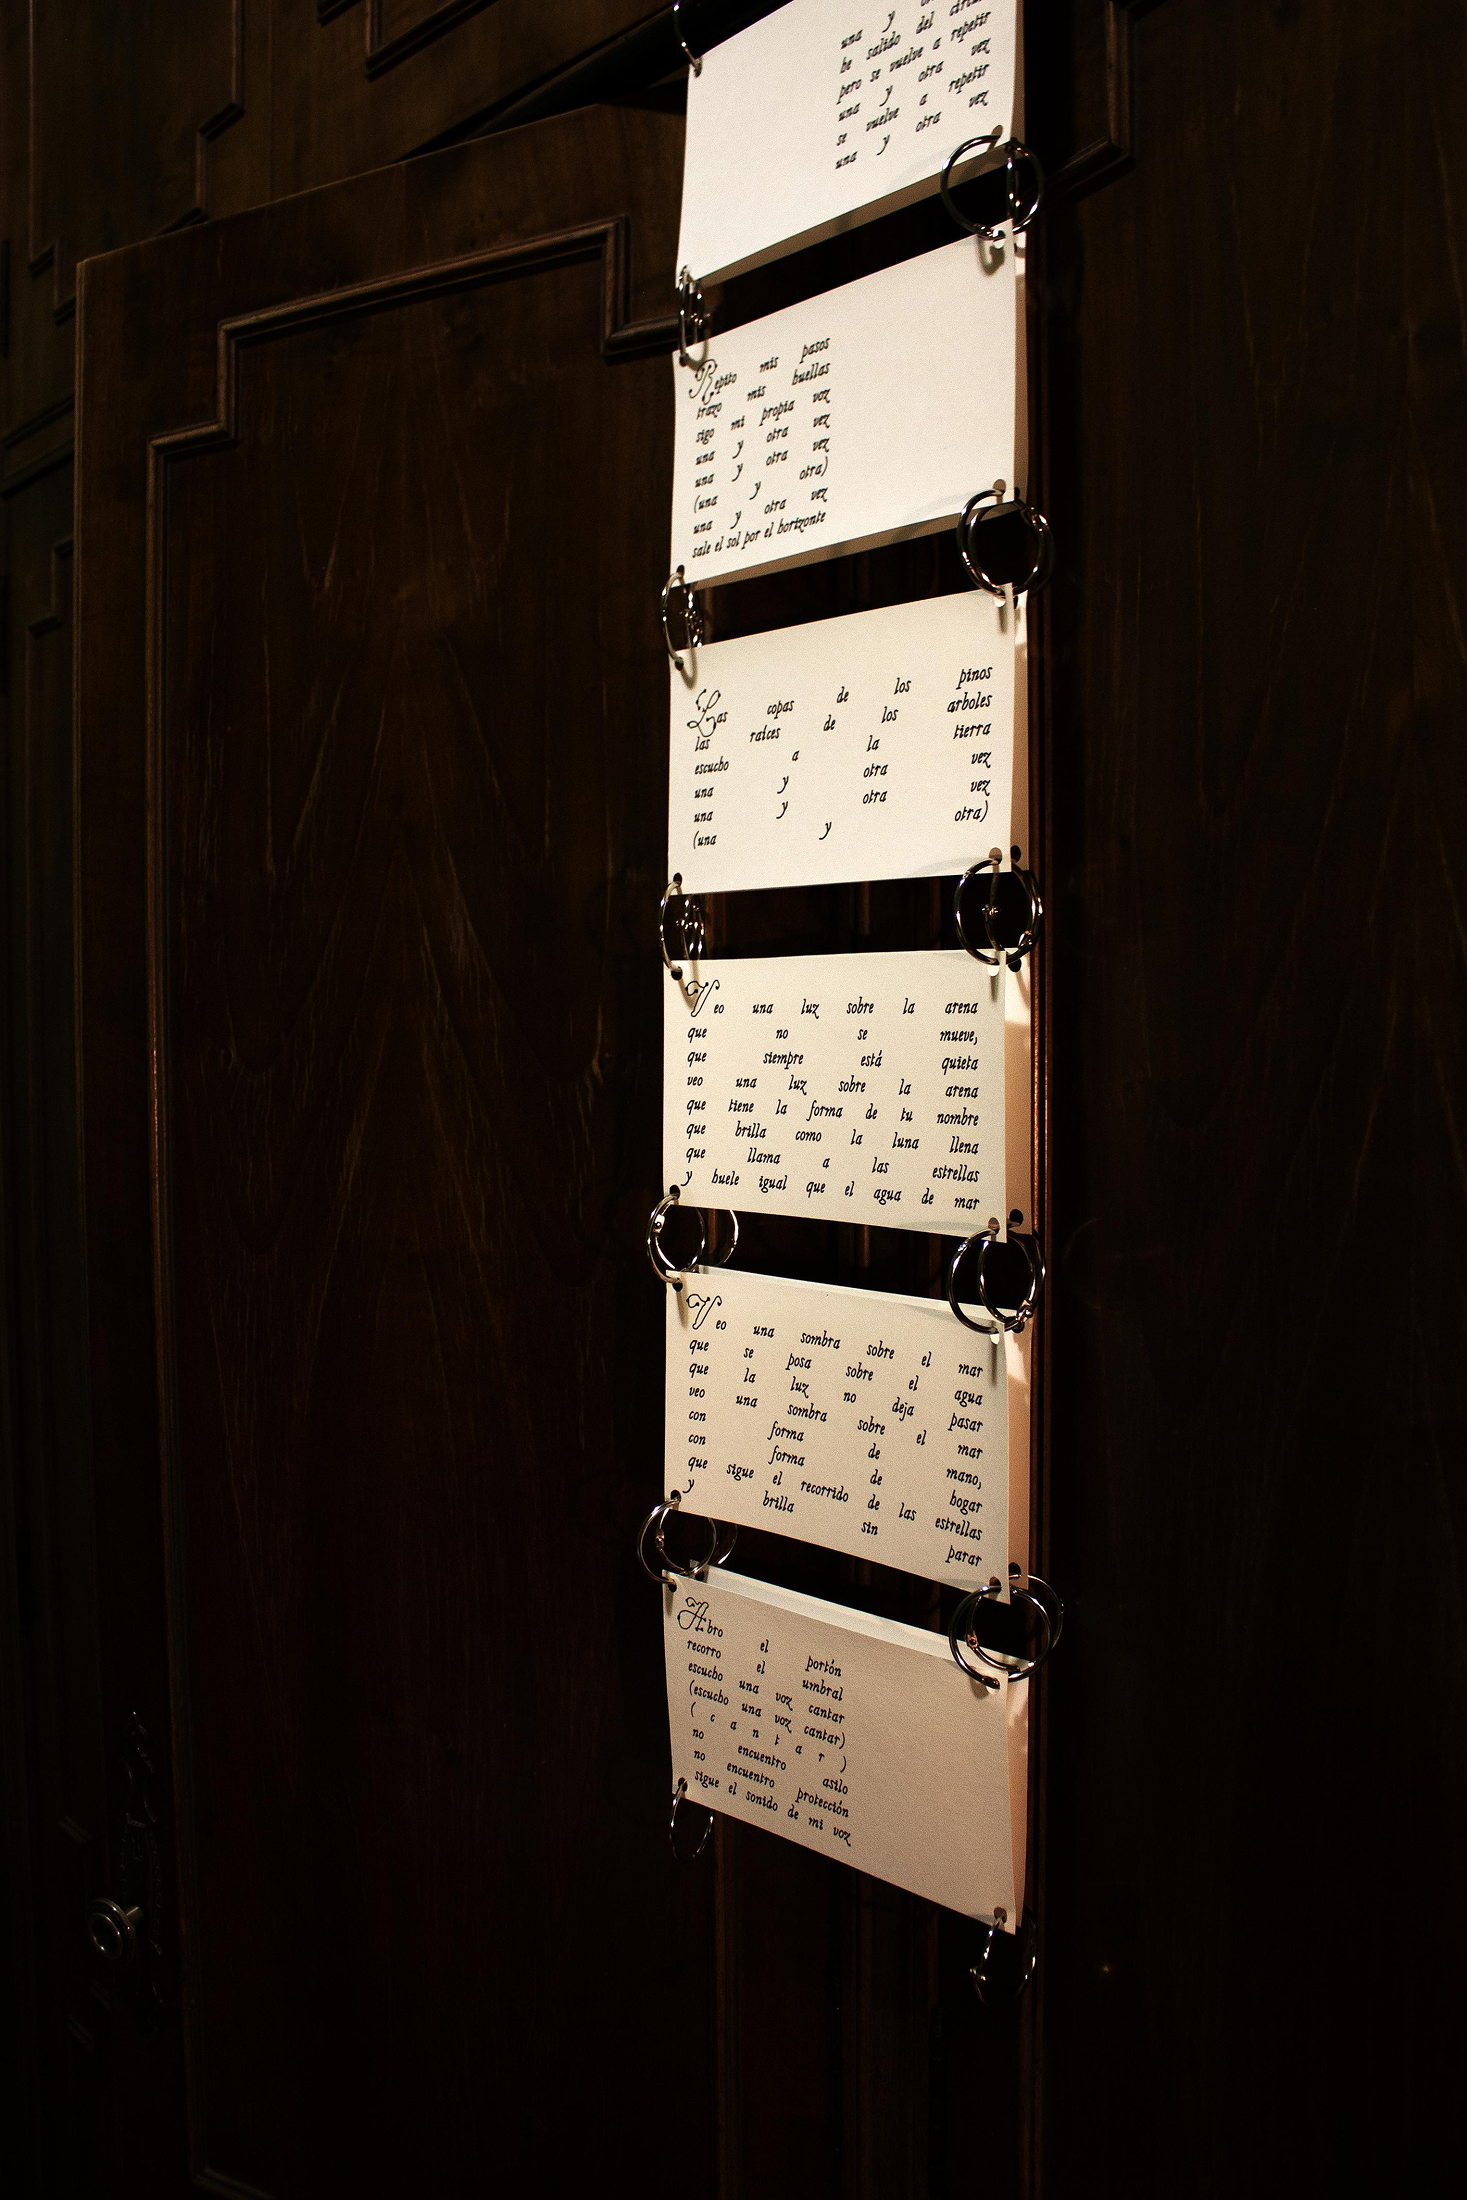 una y
he salido del
pero se vuelve a repetir
una y otra vez
se vuelve a repetir
una y otra vez
Repito mis pasos
trazo mis huellas
sigo mi propia voz
una y otra vez
una y otra vez
(una y otra)
una y otra vez
sale el sol por el horizonte
Las copas de los pinos
las raíces de los arboles
escucho a la tierra
una y otra vez
una y otra vez
(una y otra)
Veo una luz sobre la arena
que no se mueve,
que siempre está quieta
veo una luz sobre la arena
que tiene la forma de tu nombre
que brilla como la luna llena
que llama a las estrellas
y huele igual que el agua de mar
Veo una sombra sobre el mar
que se posa sobre el agua
que la luz no deja pasar
veo una sombra sobre el mar
con forma de mano,
con forma de hogar
que sigue el recorrido de las estrellas
y brilla sin parar
Abro el portón
recorro el umbral
escucho una voz cantar
(escucho una voz cantar)
( c a n t a r )
no encuentro asilo
no encuentro protección
sigue el sonido de mi voz